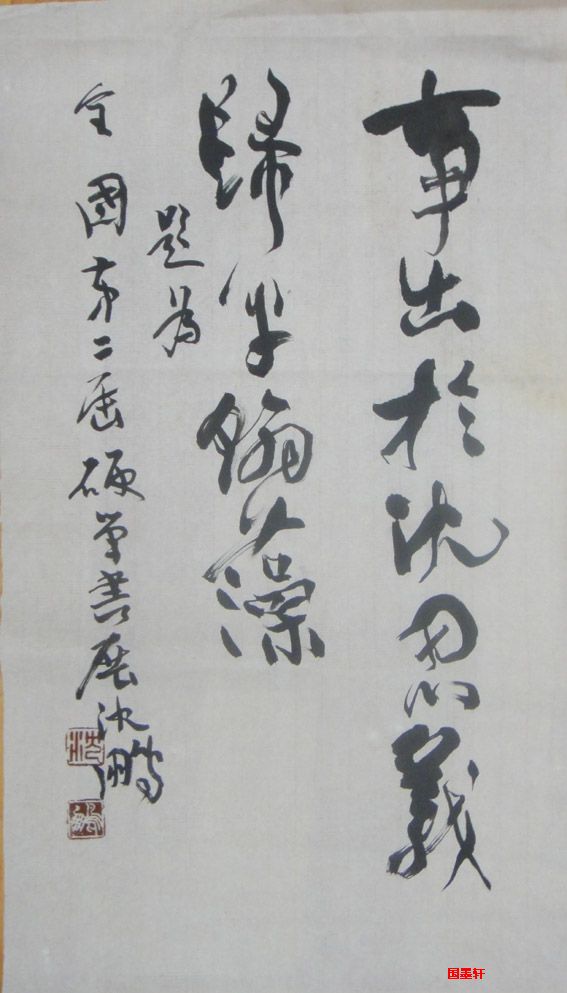 事出於沈思義
歸乎翰藻
題為
全國第二届硬筆書展沈鵬
沈
鵬
国墨轩